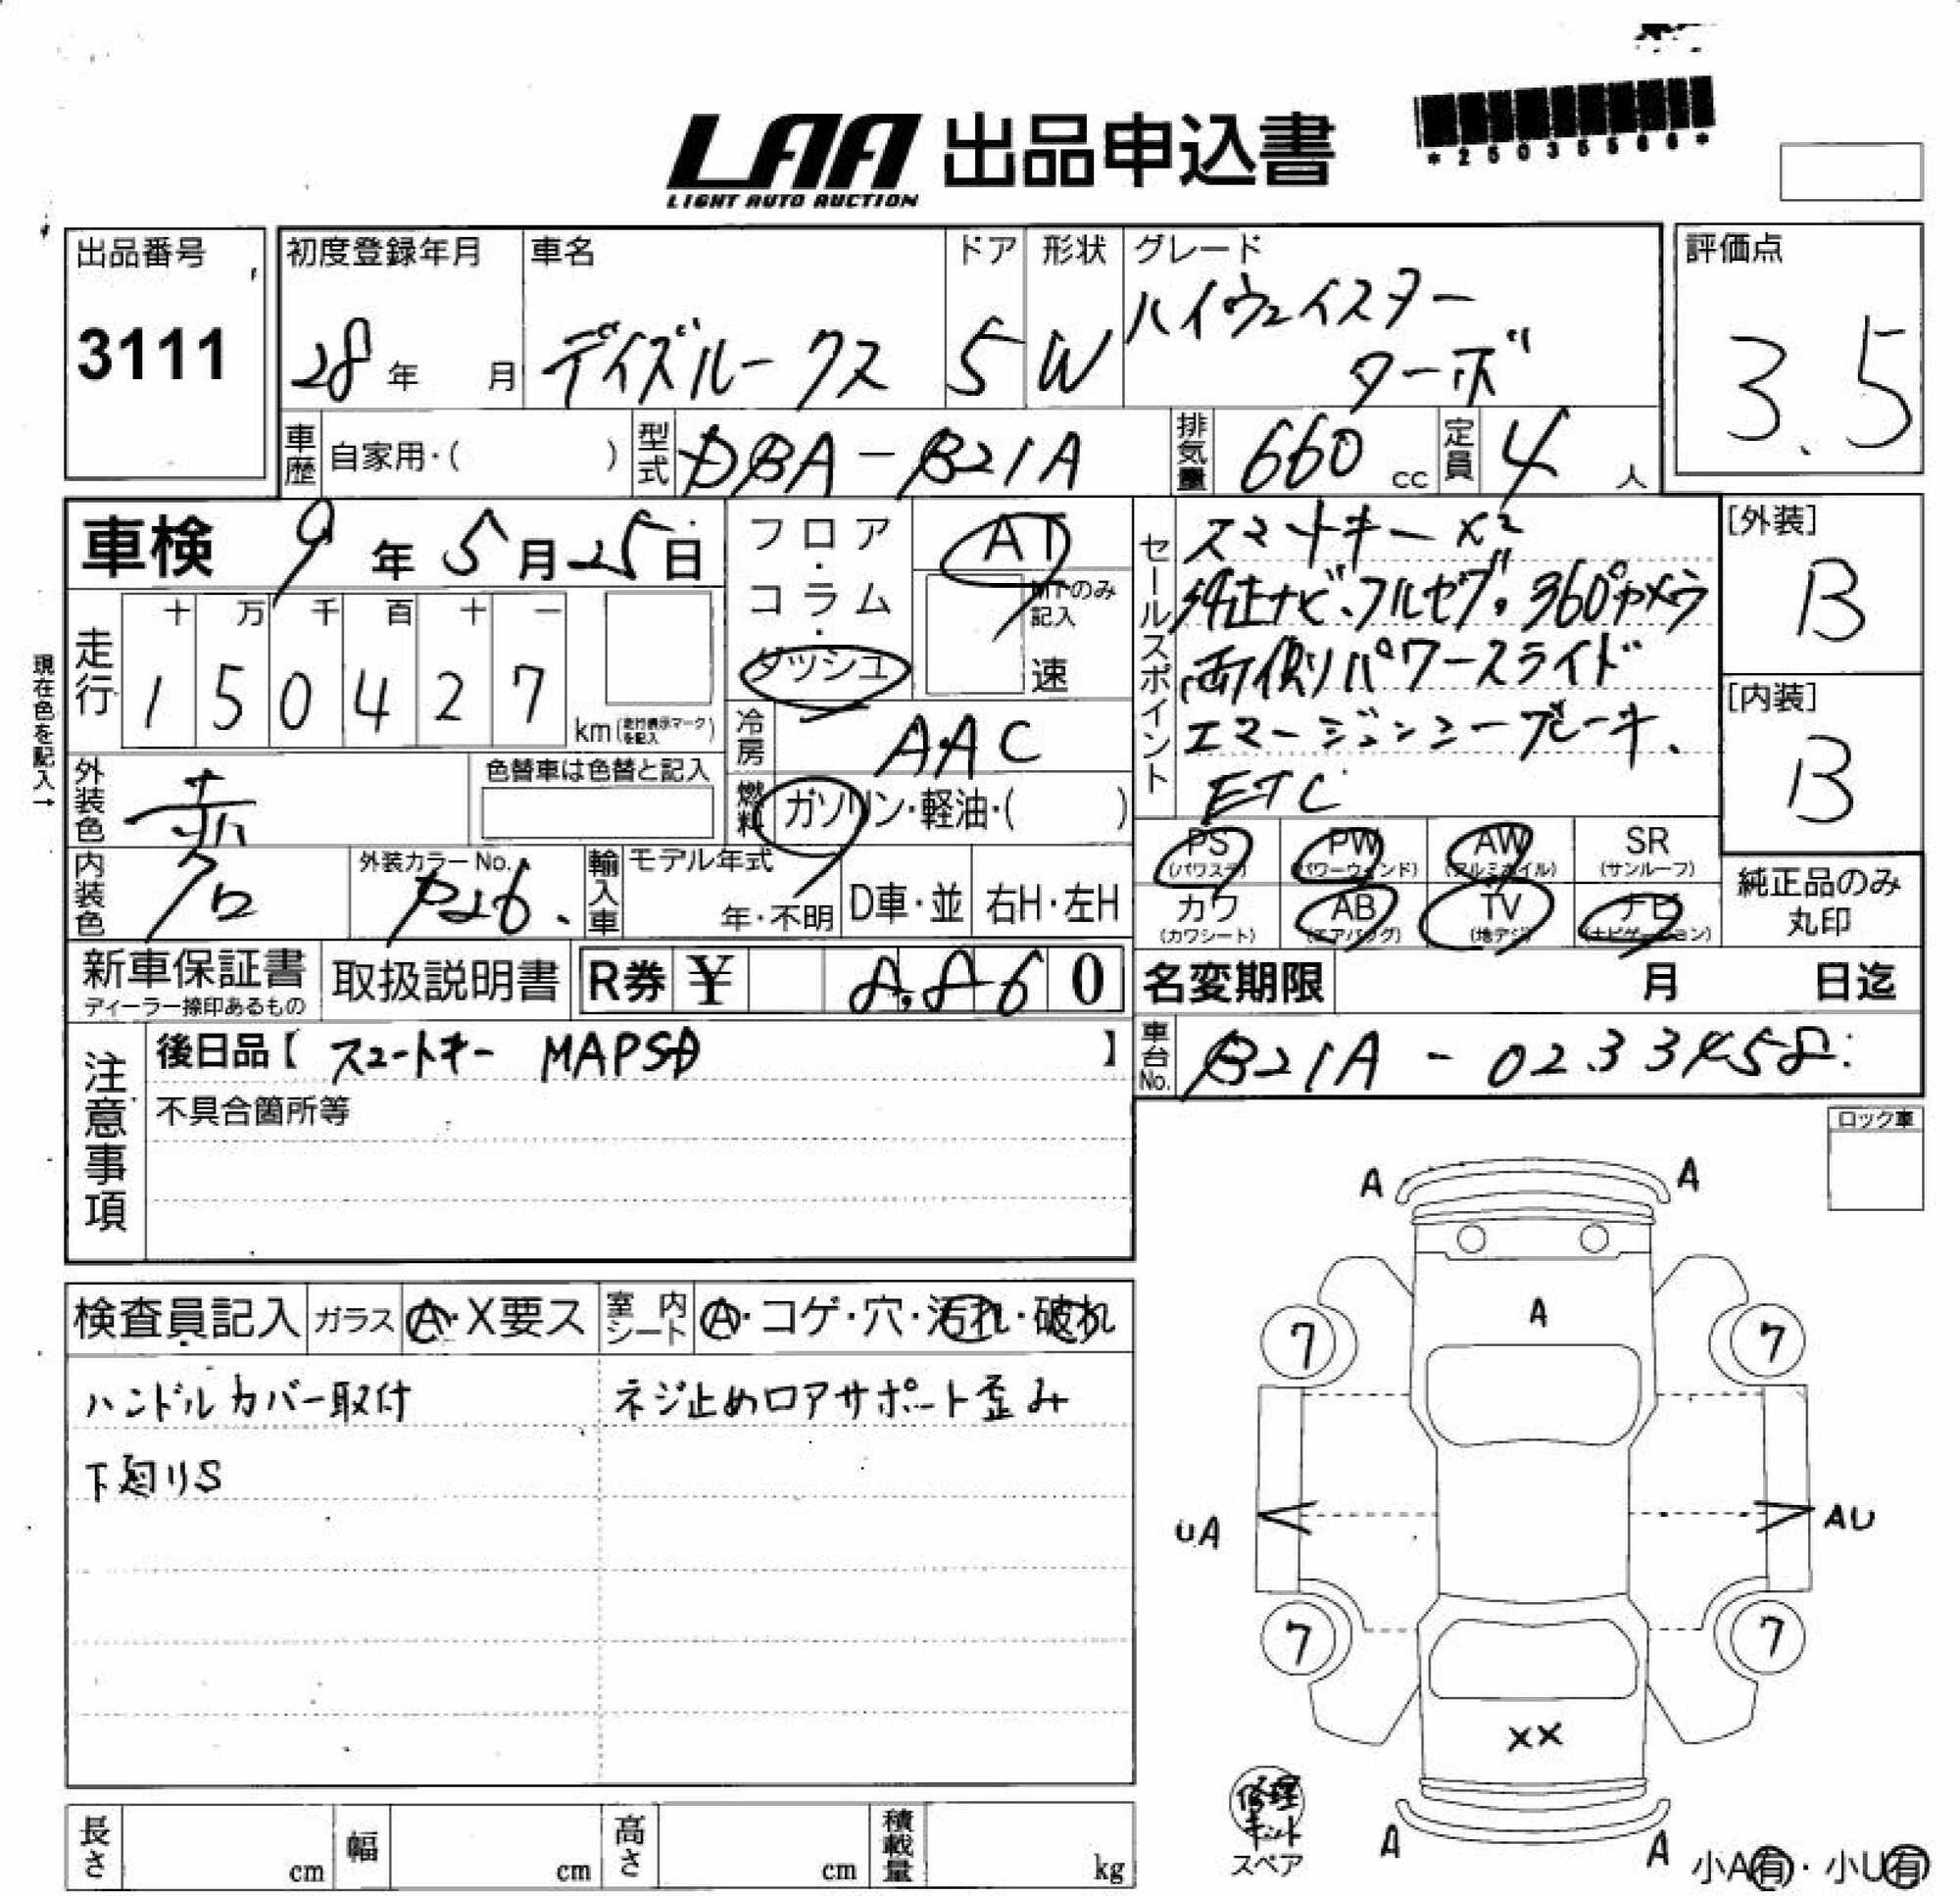 LAA 出品申込書
LIGHT AUTO AUCTION
*25035566*
出品番号
3111
初度登録年月
28年 月
車名
デイズルークス
ドア
5
形状
W
グレード
ハイウェイスター
ターボ
評価点
3.5
車歴 自家用・( )
型式 DBA-B21A
排気量 660 cc
定員 4 人
車検 9年5月25日
走行
十 万 千 百 十 一
1 5 0 4 2 7
km(走行表示マークを記入)
現在色を記入→
外装色 赤
色替車は色替と記入
内装色 クロ
外装カラーNo.
輸入車 モデル年式
年・不明 D車・並 右H・左H
フロア・コラム・ダッシュ
AT
MTのみ記入
速
冷房 AAC
燃料 ガソリン・軽油・( )
セールスポイント
スマートキー×2
純正ナビ、フルセグ、360°カメラ
両側パワースライド
エマージェンシーブレーキ、
ETC
[外装]
B
[内装]
B
PS (パワステ) PW (パワーウィンド) AW (アルミホイル) SR (サンルーフ)
カワ (カワシート) AB (エアバッグ) TV (地デジ) ナビ (ナビゲーション)
純正品のみ
丸印
新車保証書
ディーラー捺印あるもの
取扱説明書
R券 ¥ 8,860
名変期限 月 日迄
車台No. B21A-0233458
注意事項
後日品【スマートキー MAPSD】
不具合箇所等
ロック車
検査員記入 ガラス A・X要ス 室内シート A・コゲ・穴・汚れ・破れ
ハンドルカバー取付
ネジ止めロアサポート歪み
下廻りS
A A
A
7 7
UA AU
7 7
XX
A A
修理キット
スペア
小A有・小U有
長さ cm 幅 cm 高さ cm 積載量 kg